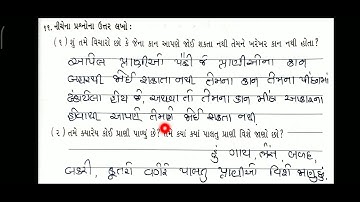 ૧૧. નીચેના પ્રશ્નોના ઉત્તર લખો :
(૧) શું તમે વિચારો છો કે જેના કાન આપણે જોઈ શકતા નથી તેમને ખરેખર કાન નથી હોતા?
આપેલ પ્રાણીઓ પૈકી જે પ્રાણીઓના કાન
બહારથી જોઈ શકાતા નથી. તેમના કાન તેમના પીંછામાં
ઢંકાયેલા હોય છે. અથવા તો તેમના કાન મીંઢ આકારના
હોવાથી આપણે તેમને જોઈ શકતા નથી.
(૨) તમે ક્યારેય કોઈ પ્રાણી પાળ્યું છે? તમે ક્યાં ક્યાં પાલતુ પ્રાણી વિશે જાણો છો?
હું ગાય, ભેંસ, બળદ,
બકરી, કૂતરો વગેરે પાલતુ પ્રાણીઓ વિશે જાણું છું.